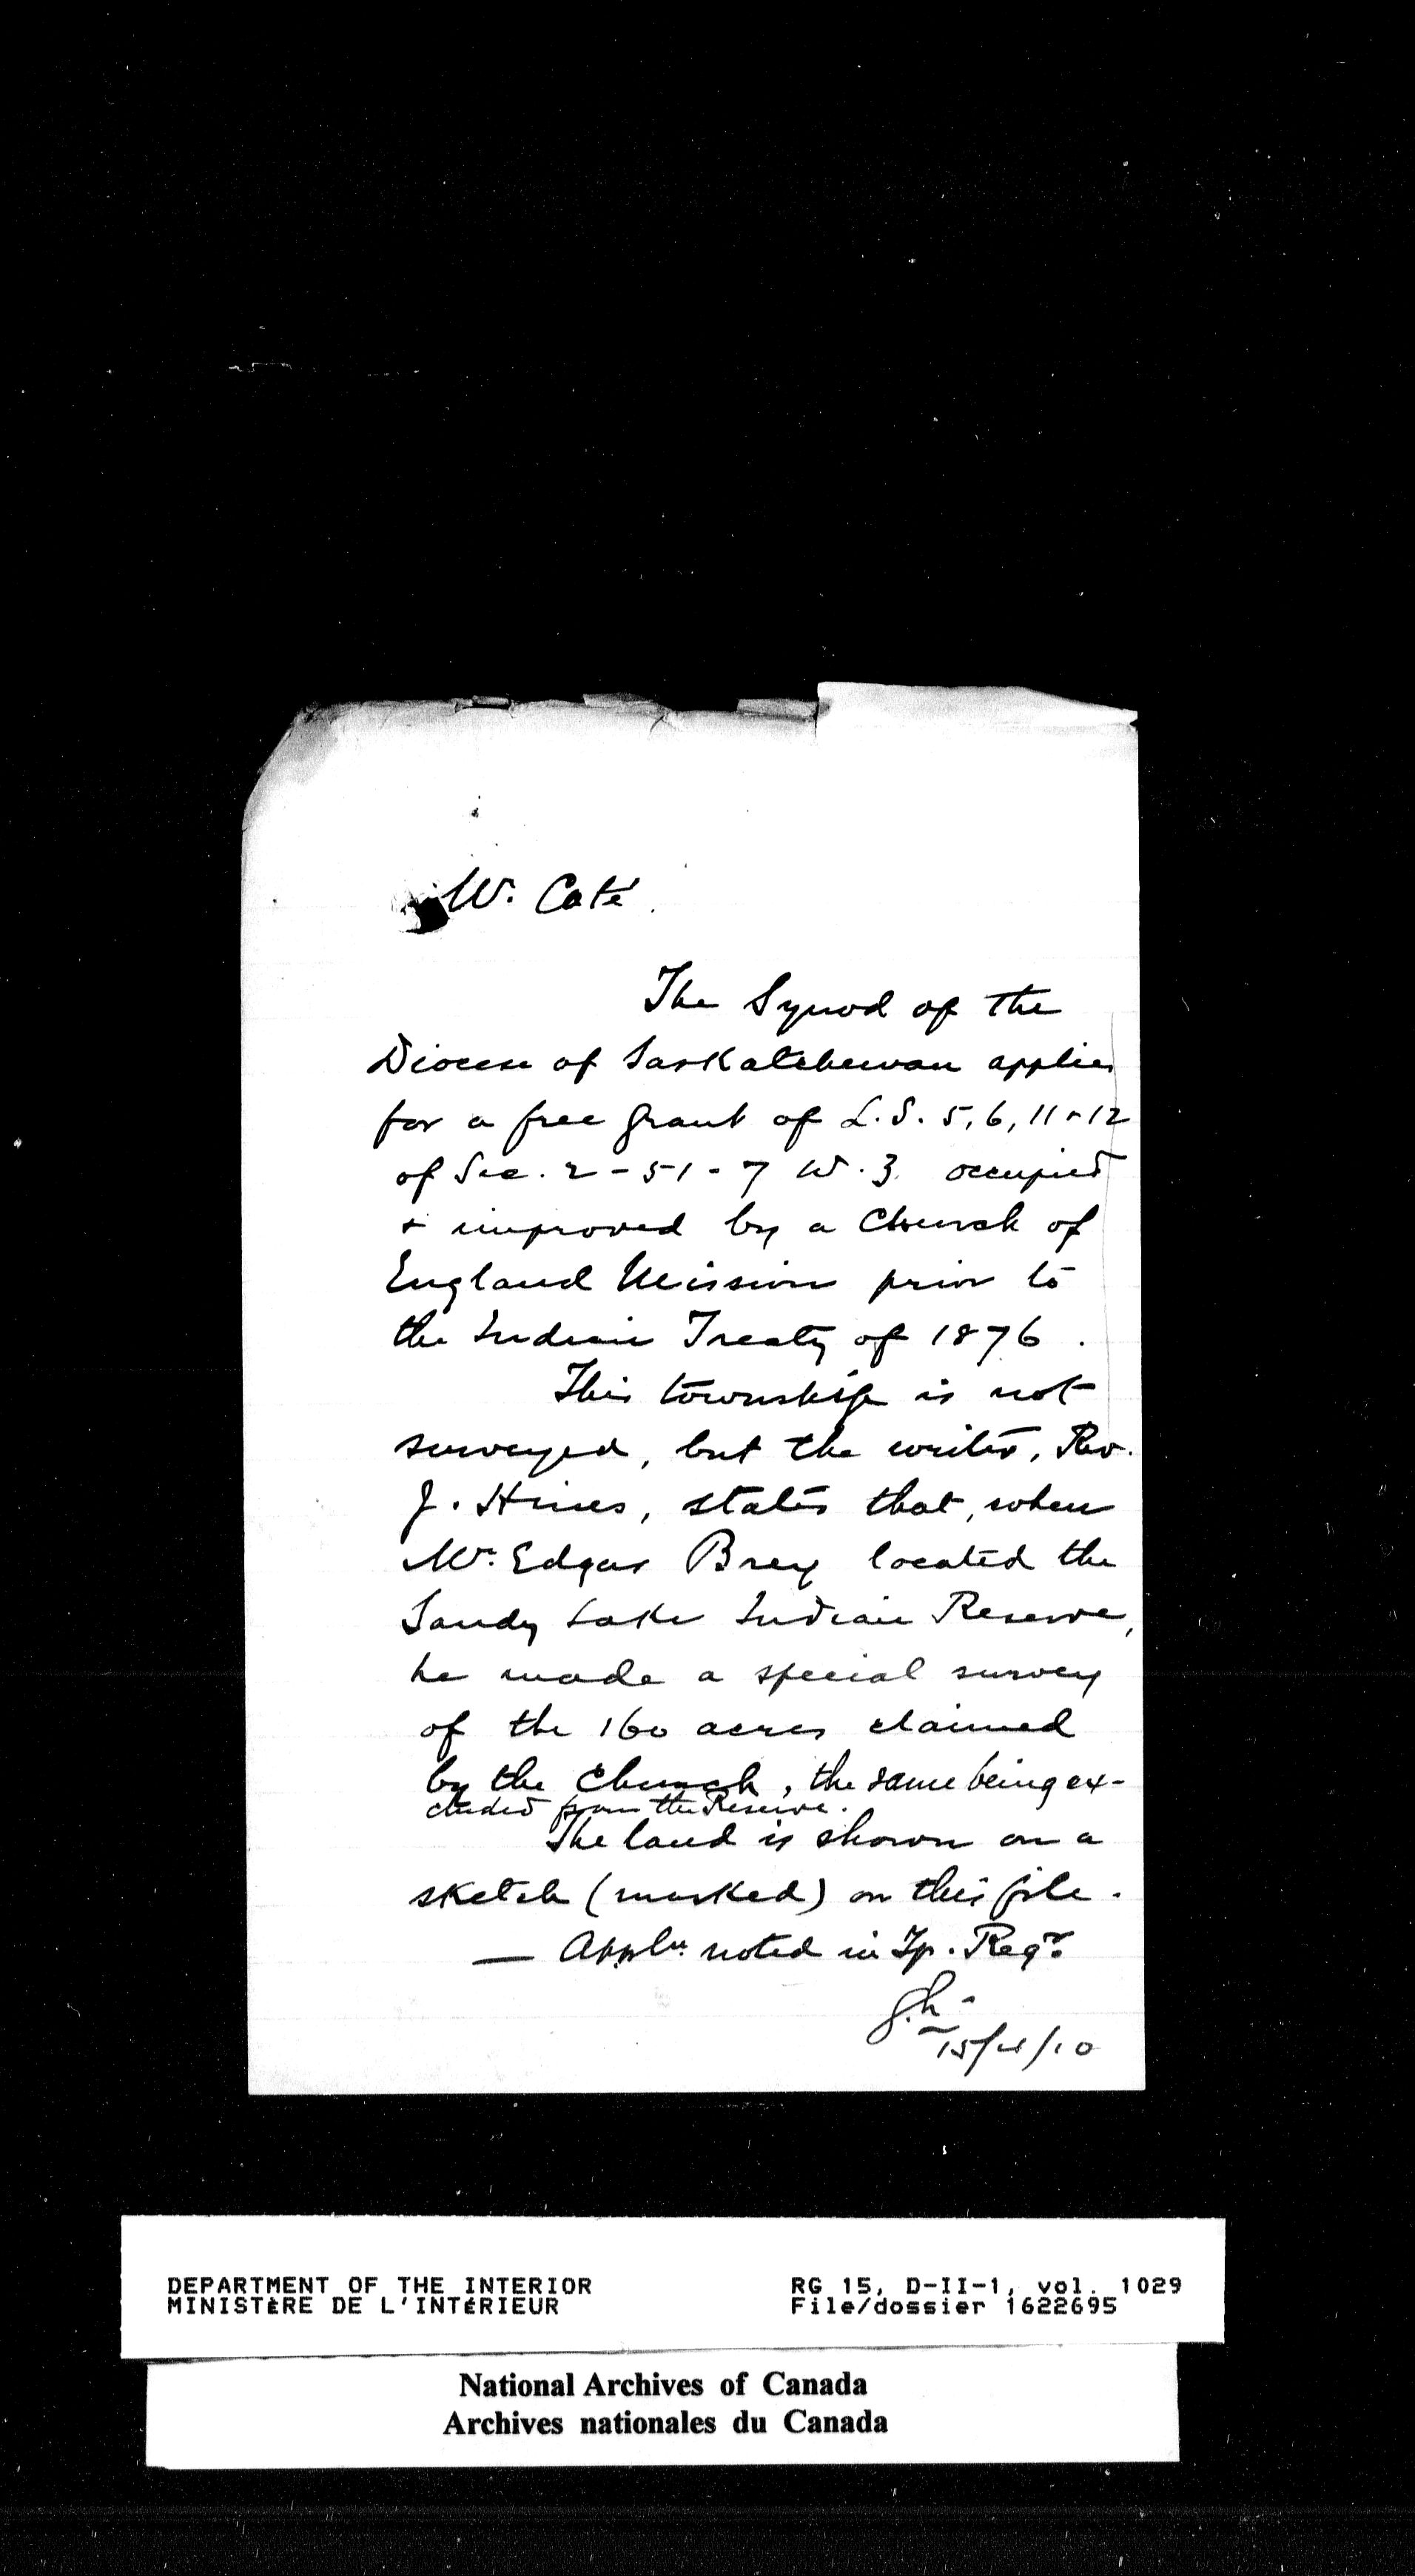 Mr. Coté.
The Synod of the
Diocese of Saskatchewan applies
for a free grant of L.S. 5, 6, 11 & 12
of Sec. 2-51-7 W. 3. occupied
& improved by a Church of
England Mission prior to
the Indian Treaty of 1876.
This township is not
surveyed, but the writer, Rev.
J. Hines, states that, when
Mr. Edgar Brey located the
Sandy Lake Indian Reserve,
he made a special survey
of the 160 acres claimed
by the Church, the same being ex-
cluded from the Reserve.
The land is shown on a
sketch (marked) on this file.
— Appln. noted in Tp. Regr.
15/4/10
DEPARTMENT OF THE INTERIOR
MINISTÈRE DE L'INTÉRIEUR
RG 15, D-II-1, vol. 1029
File/dossier 1622695
National Archives of Canada
Archives nationales du Canada